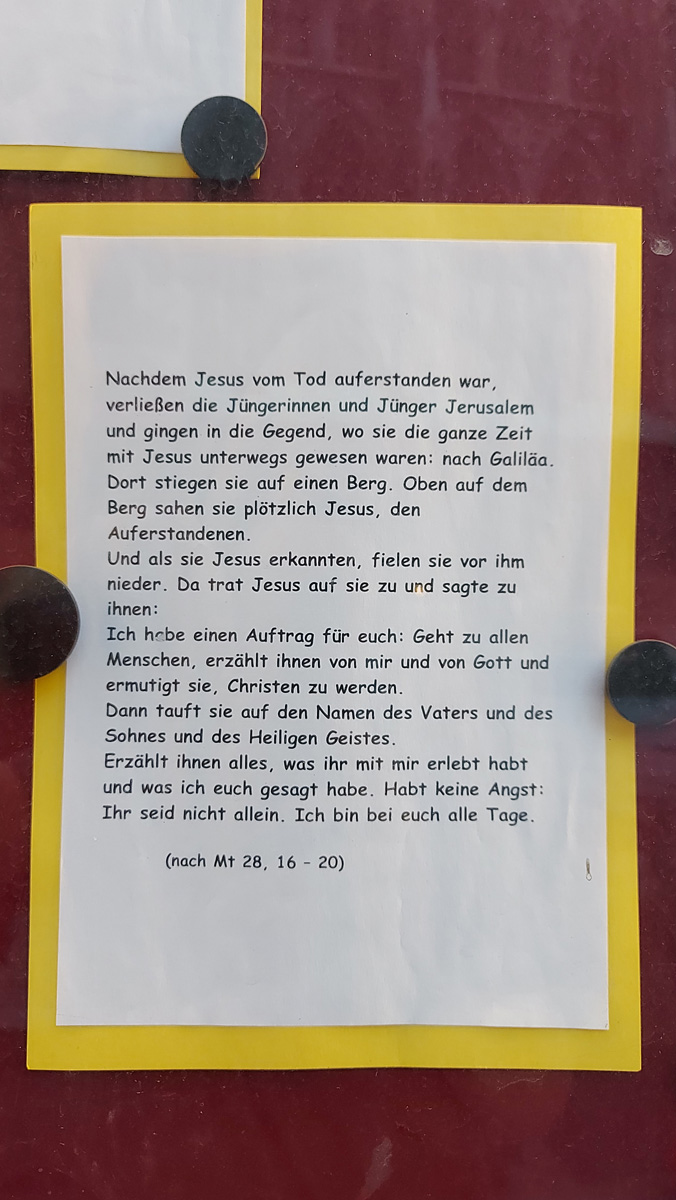 Nachdem Jesus vom Tod auferstanden war,
verließen die Jüngerinnen und Jünger Jerusalem
und gingen in die Gegend, wo sie die ganze Zeit
mit Jesus unterwegs gewesen waren: nach Galiläa.
Dort stiegen sie auf einen Berg. Oben auf dem
Berg sahen sie plötzlich Jesus, den
Auferstandenen.
Und als sie Jesus erkannten, fielen sie vor ihm
nieder. Da trat Jesus auf sie zu und sagte zu
ihnen:
Ich habe einen Auftrag für euch: Geht zu allen
Menschen, erzählt ihnen von mir und von Gott und
ermutigt sie, Christen zu werden.
Dann tauft sie auf den Namen des Vaters und des
Sohnes und des Heiligen Geistes.
Erzählt ihnen alles, was ihr mit mir erlebt habt
und was ich euch gesagt habe. Habt keine Angst:
Ihr seid nicht allein. Ich bin bei euch alle Tage.
(nach Mt 28, 16 - 20)